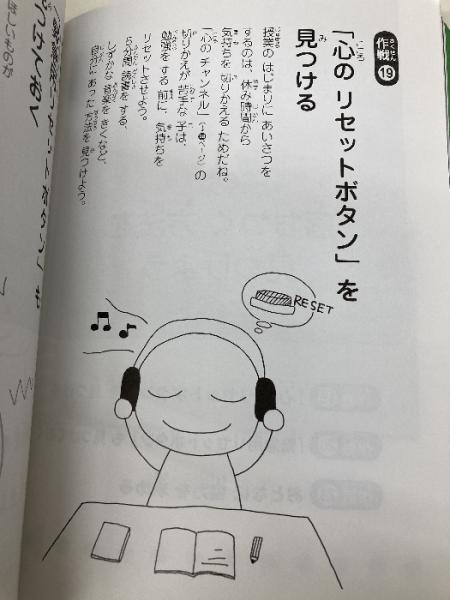 作戦19
「心の リセットボタン」を
見つける
授業の はじまりに あいさつを
するのは、休み時間から
気持ちを 切りかえる ためだね。
「心の チャンネル」(ページ)の
切りかえが 苦手な 子は、
勉強を する 前に、気持ちを
リセットさせよう。
5分間 読書を する、
しずかな 音楽を きくなど、
自分に あった 方法を 見つけよう。
RESET